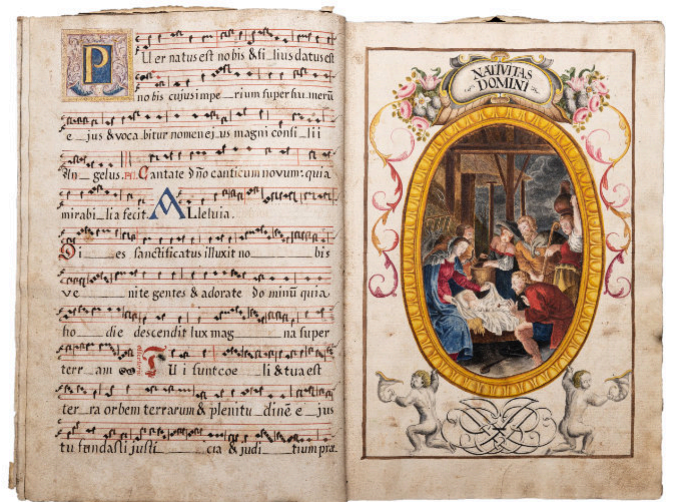 PUer natus est nobis & fi_lius datus est
no bis cujus impe_rium super hu merũ
e_jus & voca_bitur nomen ej_us magni consi_lii
An_gelus. Ps. Cantate dño canticum novum: quia
mirabi_lia fecit. ALleluia.
Di___es sanctificatus illuxit no___bis
ve___nite gentes & adorate Do minũ quia
ho___die descendit lux mag___na super
terr_am TU i sunt coe_li & tua est
ter_ra orbem terrarum & plenitu_dinẽ e_jus
tu fundasti justi___cia & judi___tium præ
NATIVITAS
DOMINI